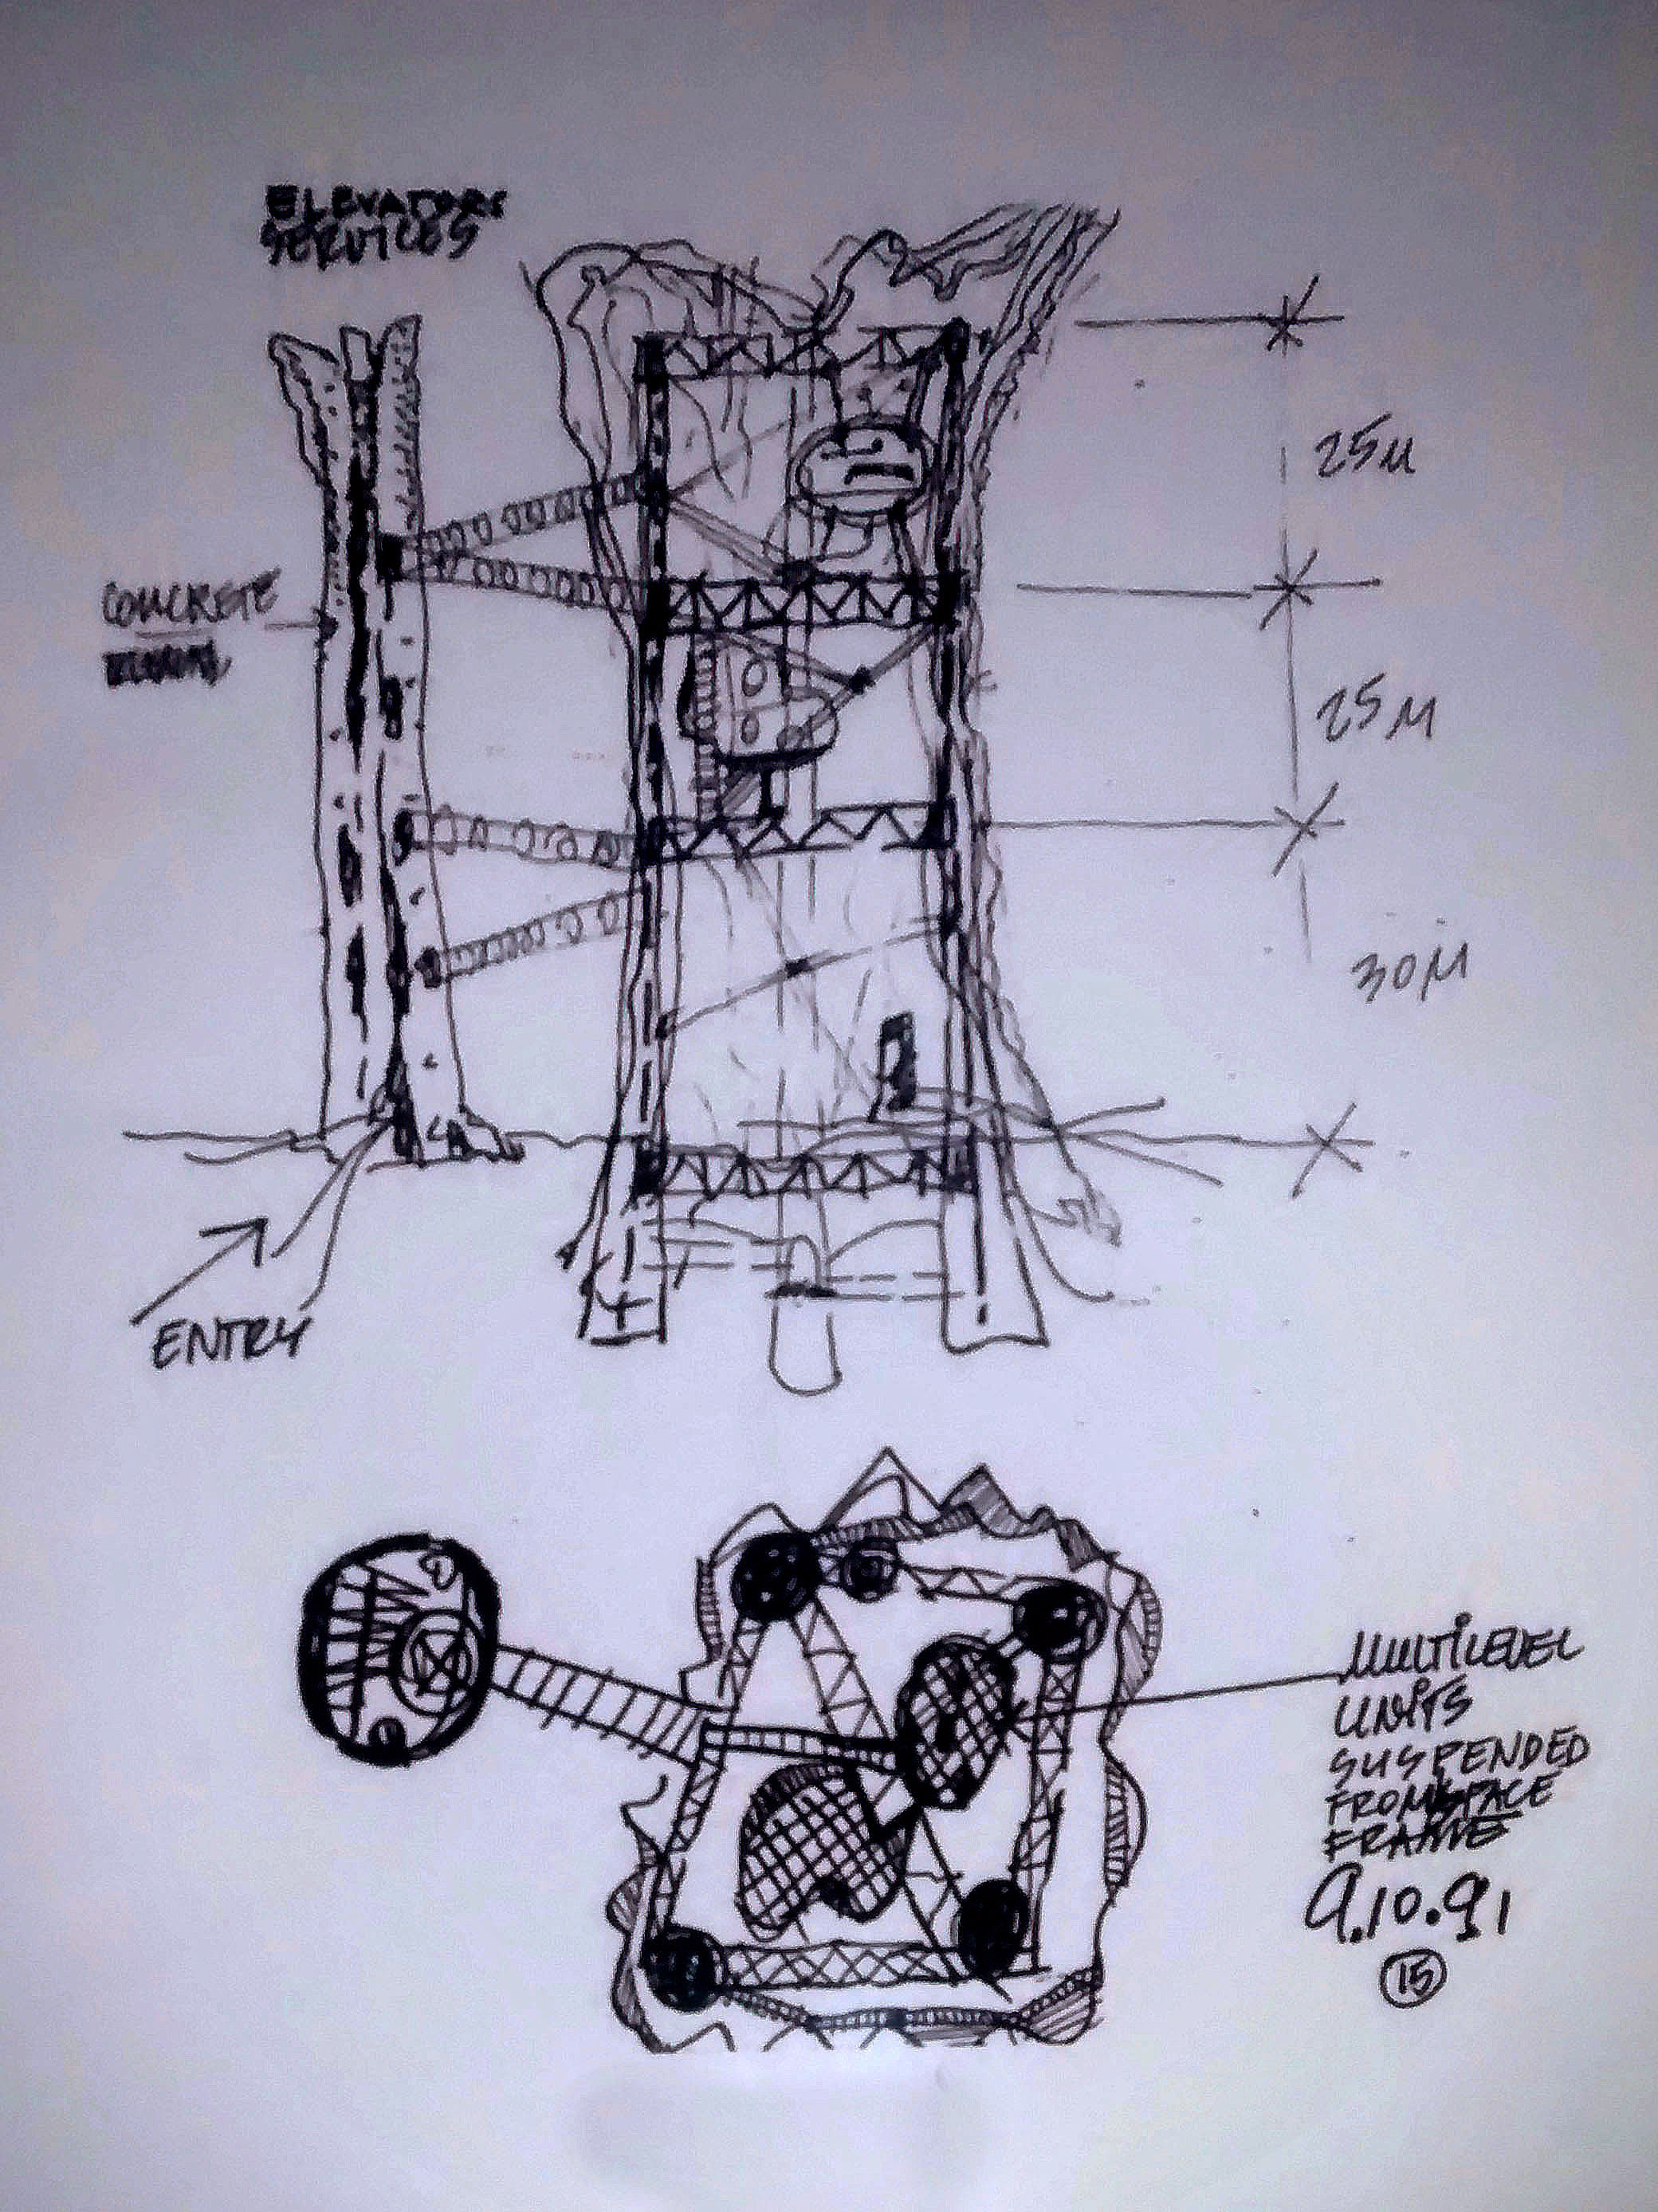 ELEVATORS
SERVICES
25M
CONCRETE
25M
30M
ENTRY
MULTILEVEL
UNITS
SUSPENDED
FROM SPACE
FRAME
9.10.91
15